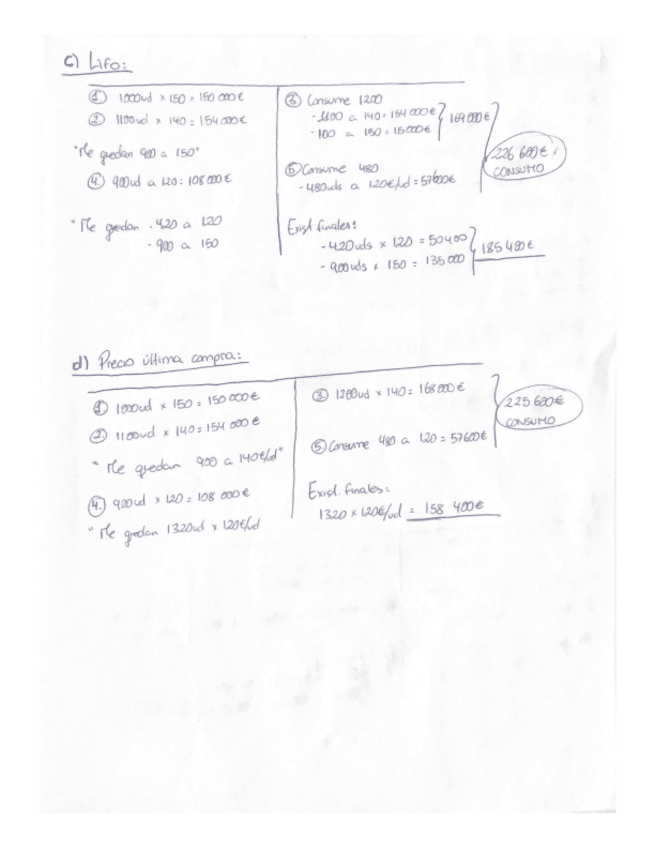 c) Lifo:
① 1000ud × 150 = 150 000€
② 1100ud × 140 = 154 000€
"Me quedan 900 a 150"
④. 900ud a 120 = 108 000€
"Me quedan . 420 a 120
- 900 a 150
③ Consume 1200
- 1100 a 140 = 154 000€
- 100 a 150 = 15000€
169 000€
⑤ Consume 480
- 480uds a 120€/ud = 57600€
226 600€.
CONSUMO
Exist finales:
- 420uds × 120 = 50400
- 900uds × 150 = 135 000
185 400€
d) Precio última compra:
① 1000ud × 150 = 150 000€
② 1100ud × 140 = 154 000€
"Me quedan 900 a 140€/ud"
④. 900ud × 120 = 108 000€
"Me quedan 1320ud × 120€/ud
③ 1200ud × 140 = 168 000€
⑤ Consume 480 a 120 = 57600€
225 600€
CONSUMO
Exist. finales:
1320 × 120€/ud = 158 400€